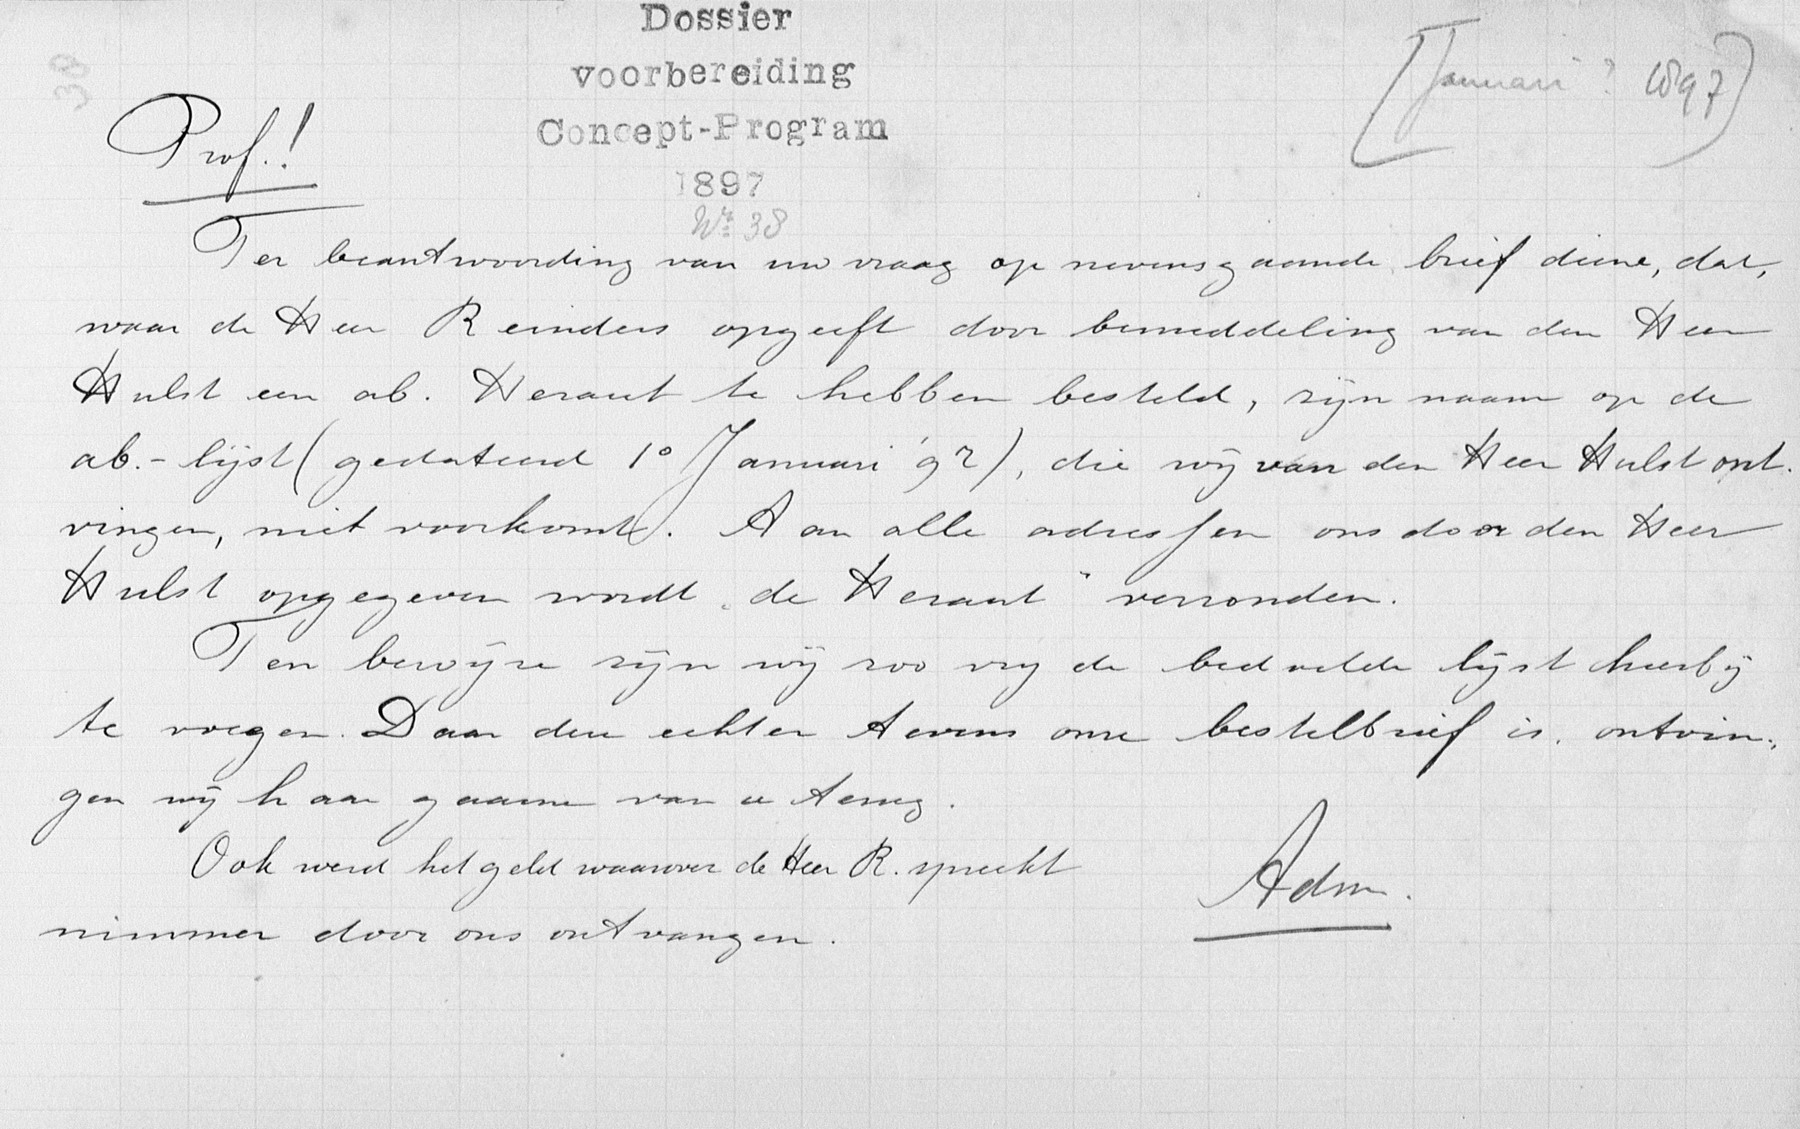 Dossier
voorbereiding
Concept-Program
1897
Nr. 38
[Januari? 1897]
38
Prof.!
Ter beantwoording van uw vraag op nevensgaande brief diene, dat,
waar de Heer Reinders opgeeft door bemiddeling van den Heer
Hulst een ab. Heraut te hebben besteld, zijn naam op de
ab.-lijst (gedateerd 1o Januari '97), die wij van den Heer Hulst ont-
vingen, niet voorkomt. Aan alle adressen ons door den Heer
Hulst opgegeven wordt „de Heraut" verzonden.
Ten bewijze zijn wij zoo vrij de bedoelde lijst hierbij
te voegen. Daar deze echter tevens onze bestelbrief is, ontvin-
gen wij haar gaarne van u terug.
Ook werd het geld waarover de Heer R. spreekt
nimmer door ons ontvangen.
Adm.